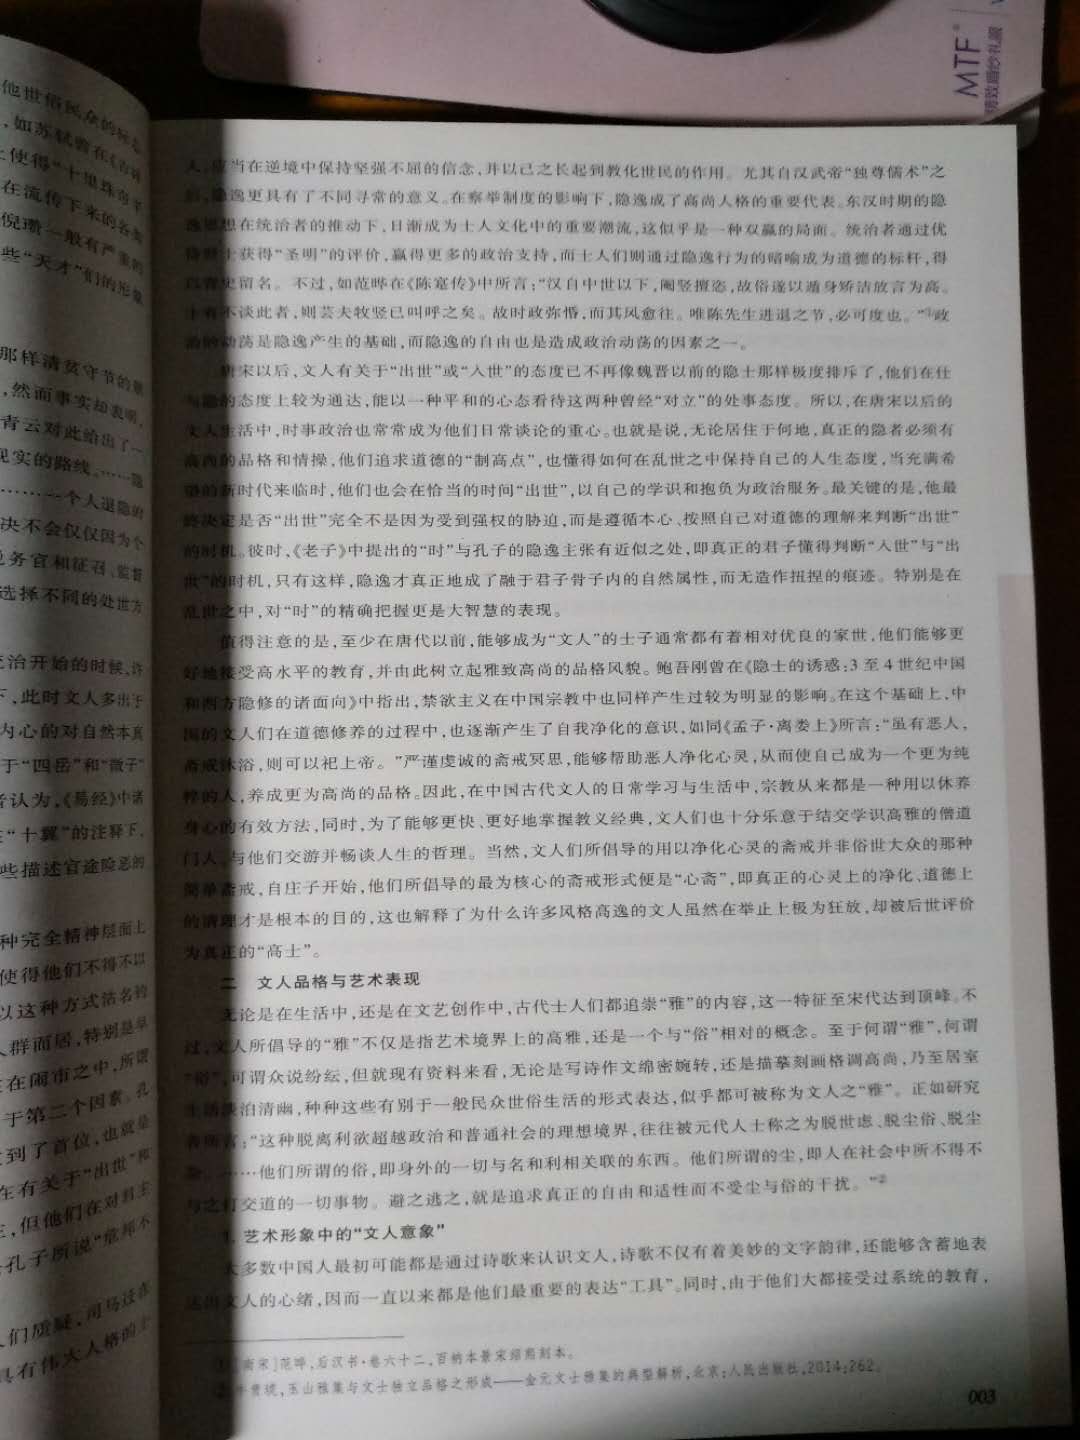 MTF
精致婚纱礼服
他世俗民众的标
，如苏轼曾在《
使得“十里珠帘半
在流传下来的各类
倪瓒一般有严重的
些“天才”们的形象
那样清贫守节的
，然而事实却表明，
青云对此给出了一
现实的路线。……隐
………一个人退隐的
决不会仅仅因为个
务官和征召、监督
选择不同的处世方
治开始的时候，许
下，此时文人多出于
内心的对自然本真
于“四岳”和“微子”
者认为，《易经》中诸
“十翼”的注释下，
些描述官途险恶的
种完全精神层面上
使得他们不得不以
以这种方式沽名钓
人群而居，特别是早
在闹市之中，所谓
于第二个因素。孔
到了首位，也就是
在有关于“出世”和
，但他们在对君主
孔子所说“危邦不
人们质疑，司马迁在
具有伟大人格的士
人，应当在逆境中保持坚强不屈的信念，并以己之长起到教化世民的作用。尤其自汉武帝“独尊儒术”之
后，隐逸更具有了不同寻常的意义。在察举制度的影响下，隐逸成了高尚人格的重要代表。东汉时期的隐
逸思想在统治者的推动下，日渐成为士人文化中的重要潮流，这似乎是一种双赢的局面。统治者通过优
待隐士获得“圣明”的评价，赢得更多的政治支持，而士人们则通过隐逸行为的暗喻成为道德的标杆，得
以青史留名。不过，如范晔在《陈寔传》中所言：“汉自中世以下，阉竖擅恣，故俗遂以遁身矫洁放言为高。
士有不谈此者，则芸夫牧竖已叫呼之矣。故时政弥惛，而其风愈往。唯陈先生进退之节，必可度也。”①政
治的动荡是隐逸产生的基础，而隐逸的自由也是造成政治动荡的因素之一。
唐宋以后，文人有关于“出世”或“入世”的态度已不再像魏晋以前的隐士那样极度排斥了，他们在仕
与隐的态度上较为通达，能以一种平和的心态看待这两种曾经“对立”的处事态度。所以，在唐宋以后的
文人生活中，时事政治也常常成为他们日常谈论的重心。也就是说，无论居住于何地，真正的隐者必须有
高尚的品格和情操，他们追求道德的“制高点”，也懂得如何在乱世之中保持自己的人生态度，当充满希
望的新时代来临时，他们也会在恰当的时间“出世”，以自己的学识和抱负为政治服务。最关键的是，他最
终决定是否“出世”完全不是因为受到强权的胁迫，而是遵循本心、按照自己对道德的理解来判断“出世”
的时机。彼时，《老子》中提出的“时”与孔子的隐逸主张有近似之处，即真正的君子懂得判断“入世”与“出
世”的时机，只有这样，隐逸才真正地成了融于君子骨子内的自然属性，而无造作扭捏的痕迹。特别是在
乱世之中，对“时”的精确把握更是大智慧的表现。
值得注意的是，至少在唐代以前，能够成为“文人”的士子通常都有着相对优良的家世，他们能够更
好地接受高水平的教育，并由此树立起雅致高尚的品格风貌。鲍吾刚曾在《隐士的诱惑：3至4世纪中国
和西方隐修的诸面向》中指出，禁欲主义在中国宗教中也同样产生过较为明显的影响。在这个基础上，中
国的文人们在道德修养的过程中，也逐渐产生了自我净化的意识，如同《孟子·离娄上》所言：“虽有恶人，
斋戒沐浴，则可以祀上帝。”严谨虔诚的斋戒冥思，能够帮助恶人净化心灵，从而使自己成为一个更为纯
粹的人，养成更为高尚的品格。因此，在中国古代文人的日常学习与生活中，宗教从来都是一种用以休养
身心的有效方法，同时，为了能够更快、更好地掌握教义经典，文人们也十分乐意于结交学识高雅的僧道
门人，与他们交游并畅谈人生的哲理。当然，文人们所倡导的用以净化心灵的斋戒并非俗世大众的那种
简单斋戒，自庄子开始，他们所倡导的最为核心的斋戒形式便是“心斋”，即真正的心灵上的净化、道德上
的清理才是根本的目的，这也解释了为什么许多风格高逸的文人虽然在举止上极为狂放，却被后世评价
为真正的“高士”。
二 文人品格与艺术表现
无论是在生活中，还是在文艺创作中，古代士人们都追崇“雅”的内容，这一特征至宋代达到顶峰。不
过，文人所倡导的“雅”不仅是指艺术境界上的高雅，还是一个与“俗”相对的概念。至于何谓“雅”，何谓
“俗”，可谓众说纷纭，但就现有资料来看，无论是写诗作文绵密婉转，还是描摹刻画格调高尚，乃至居室
生活淡泊清幽，种种这些有别于一般民众世俗生活的形式表达，似乎都可被称为文人之“雅”。正如研究
者所言：“这种脱离利欲超越政治和普通社会的理想境界，往往被元代人士称之为脱世虑、脱尘俗、脱尘
……他们所谓的俗，即身外的一切与名和利相关联的东西。他们所谓的尘，即人在社会中所不得不
与之打交道的一切事物。避之逃之，就是追求真正的自由和适性而不受尘与俗的干扰。”②
1. 艺术形象中的“文人意象”
大多数中国人最初可能都是通过诗歌来认识文人，诗歌不仅有着美妙的文字韵律，还能够含蓄地表
达出文人的心绪，因而一直以来都是他们最重要的表达“工具”。同时，由于他们大都接受过系统的教育，
① [南宋]范晔，后汉书·卷六十二，百衲本景宋绍熙刻本。
② 牛贵琥，玉山雅集与文士独立品格之形成——金元文士雅集的典型解析，北京：人民出版社，2014：262。
003